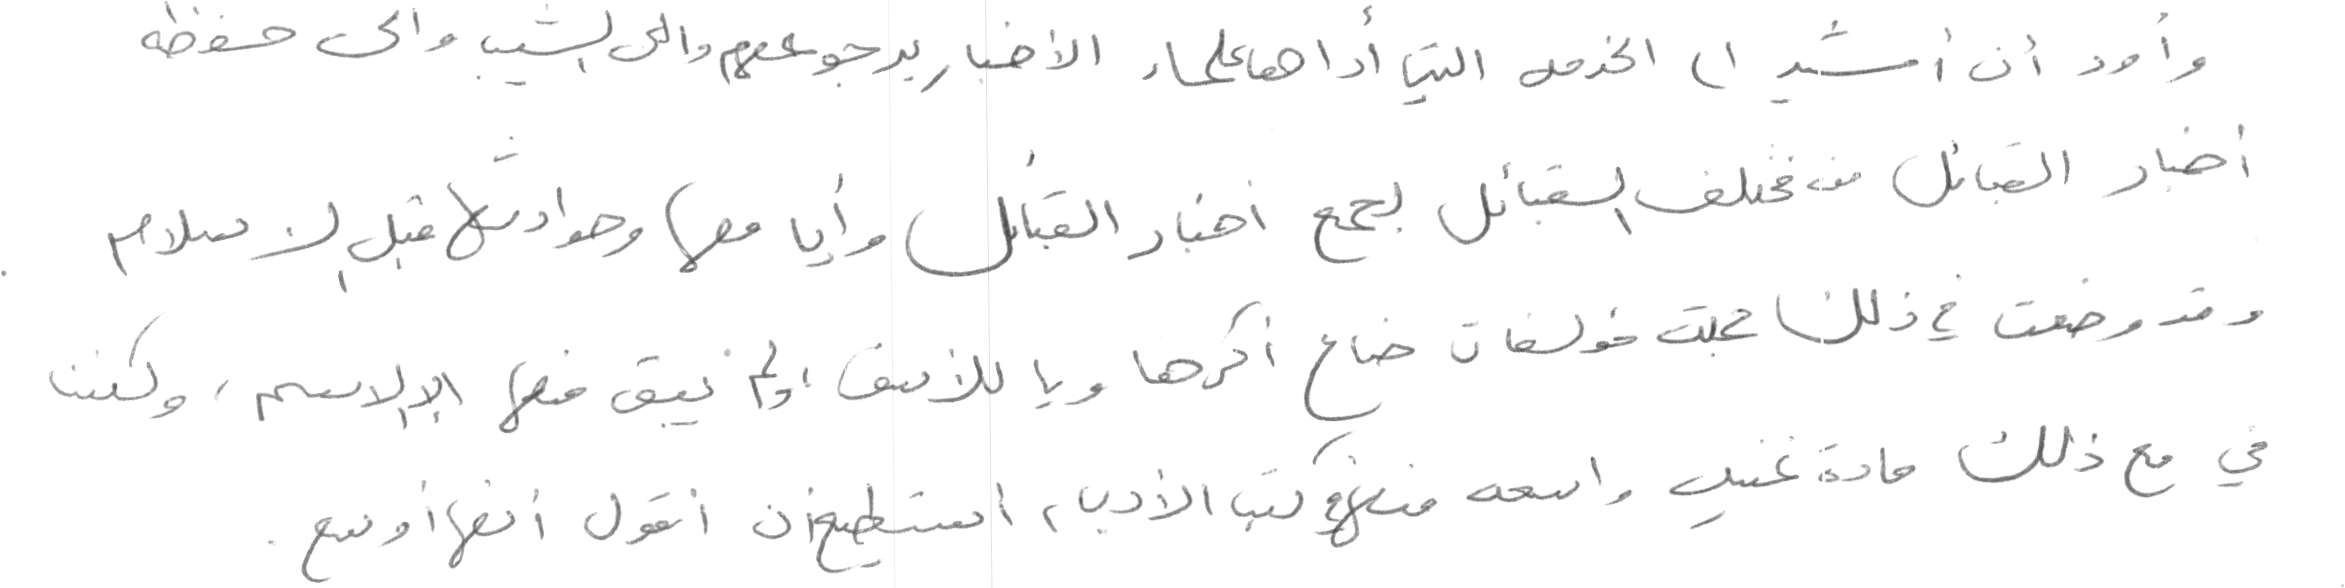 وأود أن أشير الى الخدمه التي أداها علماء الأخبار برجوعهم والى الشيب والى حفظه
أخبار القبائل من مختلف القبائل لجمع أخبار القبائل وأيامها وحوادثها قبل الاسلام
وقد وضعت في ذلك جملة مؤلفات ضاع أكثرها ويا للأسف، ولم يبق منها الا الاسم، ولكننا
في مع ذلك مادة غنيه واسعه منها في كتب الأدب، استطيع أن أقول أنها أوسع.